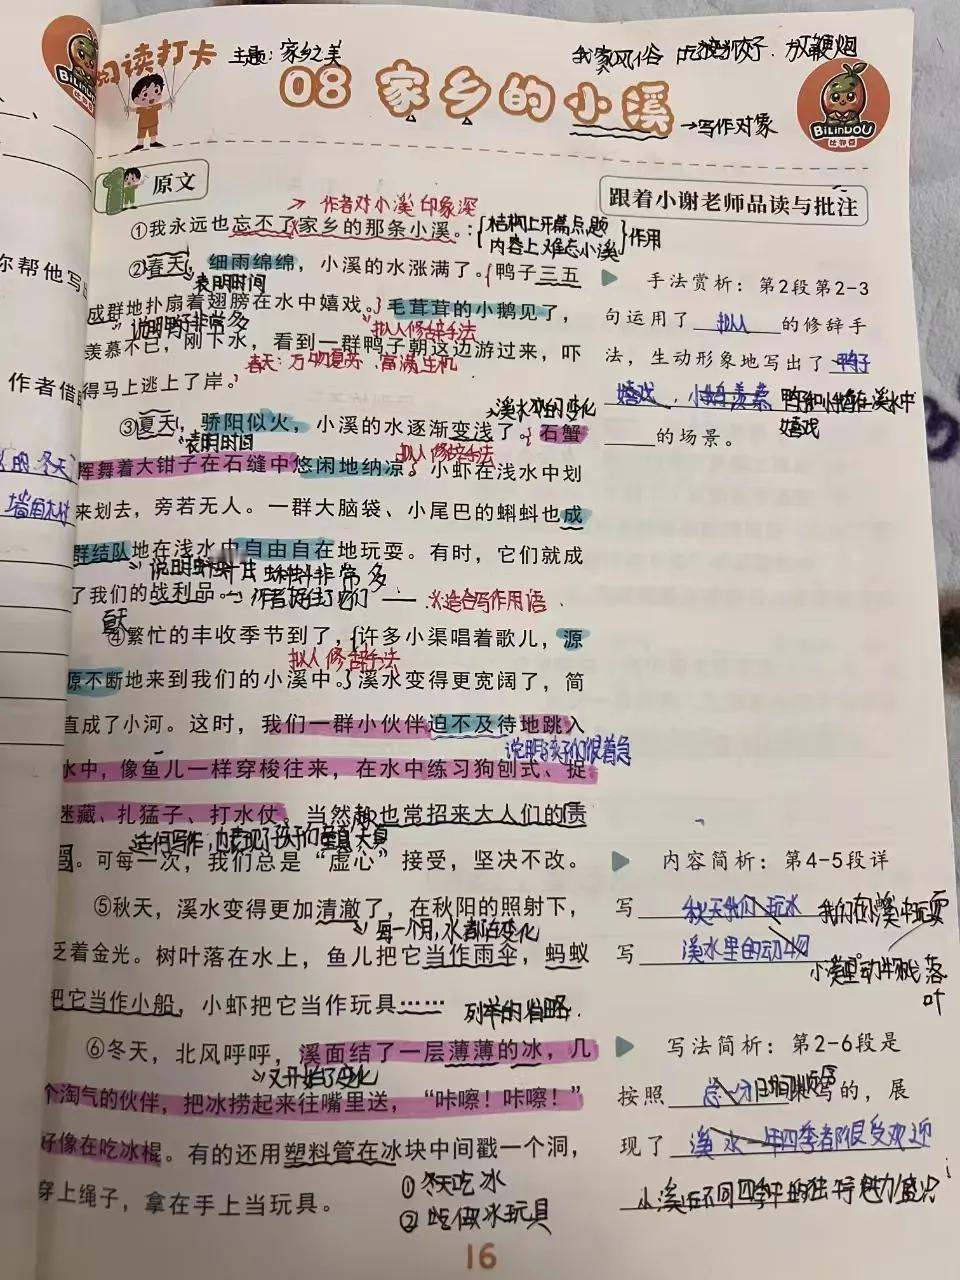 阅读打卡
主题：家乡之美
08 家乡的小溪
→写作对象
BiLiNDOU
1 原文
跟着小谢老师品读与批注
→ 作者对小溪印象深
①我永远也忘不了家乡的那条小溪。
结构上开篇点题
内容上难忘小溪
作用
②春天，细雨绵绵，小溪的水涨满了。鸭子三五
表明时间
成群地扑扇着翅膀在水中嬉戏。毛茸茸的小鹅见了，
拟人修辞手法
羡慕不已，刚下水，看到一群鸭子朝这边游过来，吓
春天：万物复苏、富满生机
得马上逃上了岸。
③夏天，骄阳似火，小溪的水逐渐变浅了。石蟹
表明时间
拟人修辞手法
挥舞着大钳子在石缝中悠闲地纳凉。小虾在浅水中划
来划去，旁若无人。一群大脑袋、小尾巴的蝌蚪也成
群结队地在浅水中自由自在地玩耍。有时，它们就成
了我们的战利品。
④繁忙的丰收季节到了，许多小渠唱着歌儿，源
拟人修辞手法
源不断地来到我们的小溪中。溪水变得更宽阔了，简
直成了小河。这时，我们一群小伙伴迫不及待地跳入
说明孩子们很着急
水中，像鱼儿一样穿梭往来，在水中练习狗刨式、捉
迷藏、扎猛子、打水仗。当然，也常招来大人们的责
。可每一次，我们总是“虚心”接受，坚决不改。
⑤秋天，溪水变得更加清澈了，在秋阳的照射下，
每一个月，水都在变化
泛着金光。树叶落在水上，鱼儿把它当作雨伞，蚂蚁
把它当作小船，小虾把它当作玩具……
列举的省略
⑥冬天，北风呼呼，溪面结了一层薄薄的冰，几
又开始了变化
个淘气的伙伴，把冰捞起来往嘴里送，“咔嚓！咔嚓！”
好像在吃冰棍。有的还用塑料管在冰块中间戳一个洞，
穿上绳子，拿在手上当玩具。
①冬天吃冰
②吃做冰玩具
手法赏析：第2段第2-3
句运用了 拟人 的修辞手
法，生动形象地写出了 鸭子
嬉戏，小鹅羡慕 鸭和小鹅在溪水中
嬉戏
的场景。
内容简析：第4-5段详
写 秋天我们玩水 我们在小溪中玩耍
写 溪水里的动物
写法简析：第2-6段是
按照 写的，展
现了 溪水一年四季都很受欢迎
你帮他写
作者借
的冬天
16